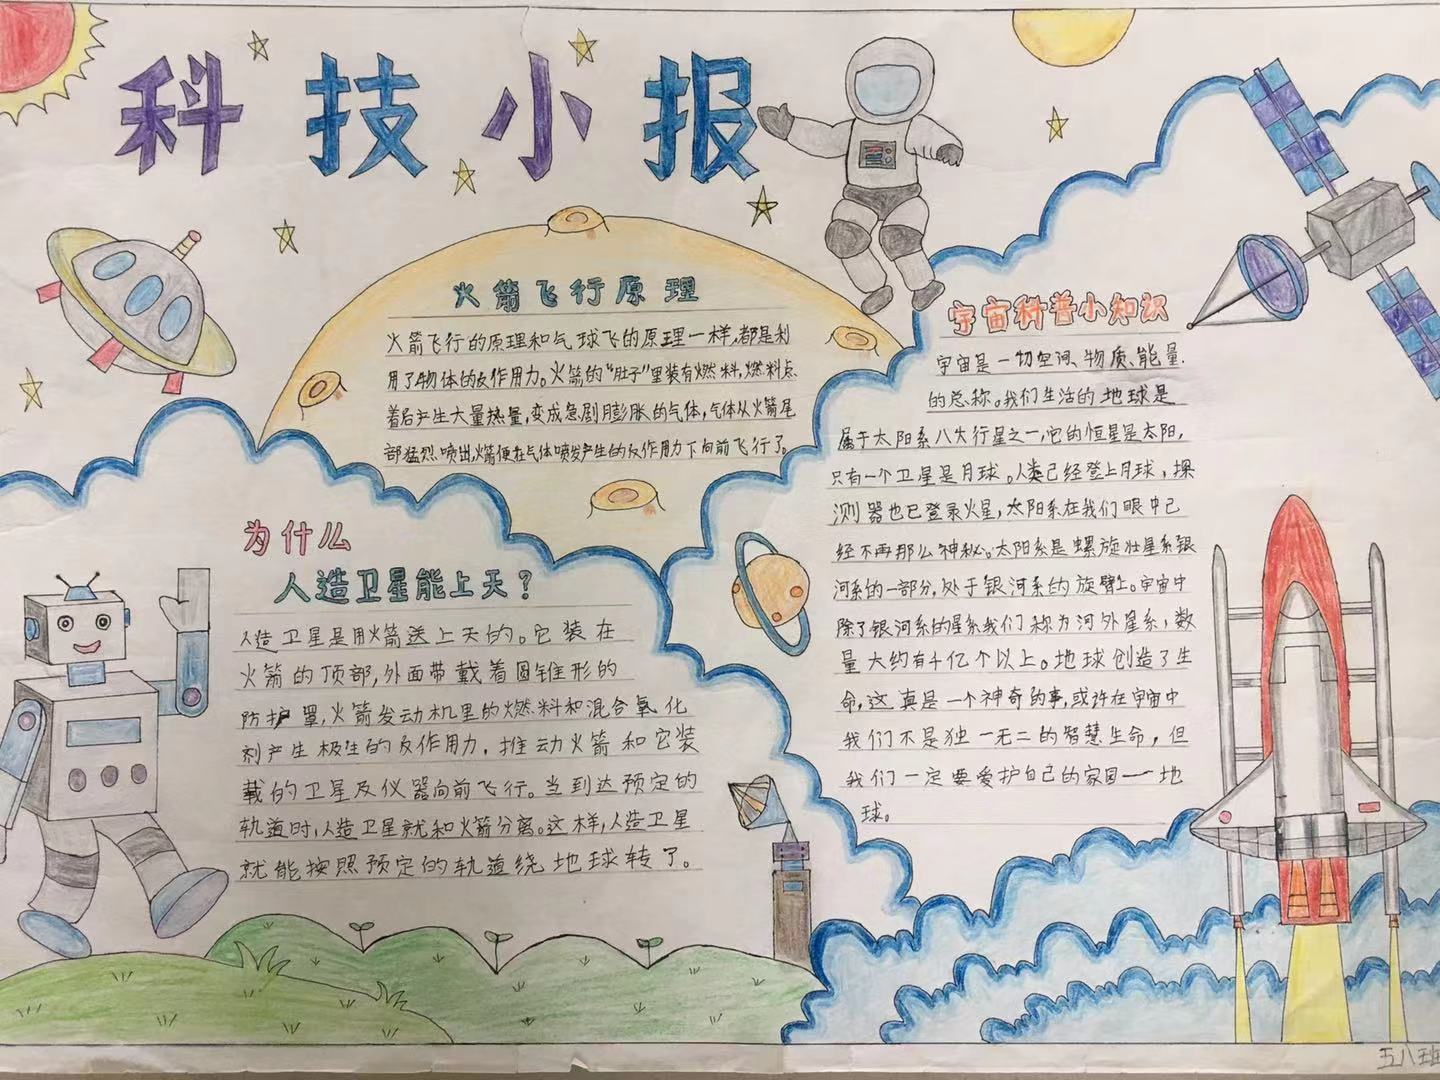 科技小报
火箭飞行原理
火箭飞行的原理和气球飞的原理一样,都是利
用了物体的反作用力。火箭的“肚子”里装有燃料,燃料点
着后产生大量热量,变成急剧膨胀的气体,气体从火箭尾
部猛烈喷出,火箭便在气体喷发产生的反作用力下向前飞行了。
宇宙科普小知识
宇宙是一切空间、物质、能量
的总称。我们生活的地球是
属于太阳系八大行星之一,它的恒星是太阳,
只有一个卫星是月球。人类已经登上月球,探
测器也已登录火星,太阳系在我们眼中已
经不再那么神秘。太阳系是螺旋壮星系银
河系的一部分,处于银河系的旋臂上。宇宙中
除了银河系的星系我们称为河外星系,数
量大约有千亿个以上。地球创造了生
命,这真是一个神奇的事,或许在宇宙中
我们不是独一无二的智慧生命,但
我们一定要爱护自己的家园——地
球。
为什么
人造卫星能上天?
人造卫星是用火箭送上天的。它装在
火箭的顶部,外面带戴着圆锥形的
防护罩,火箭发动机里的燃料和混合氧化
剂产生极生的反作用力,推动火箭和它装
载的卫星及仪器向前飞行。当到达预定的
轨道时,人造卫星就和火箭分离。这样,人造卫星
就能按照预定的轨道绕地球转了。
五八班